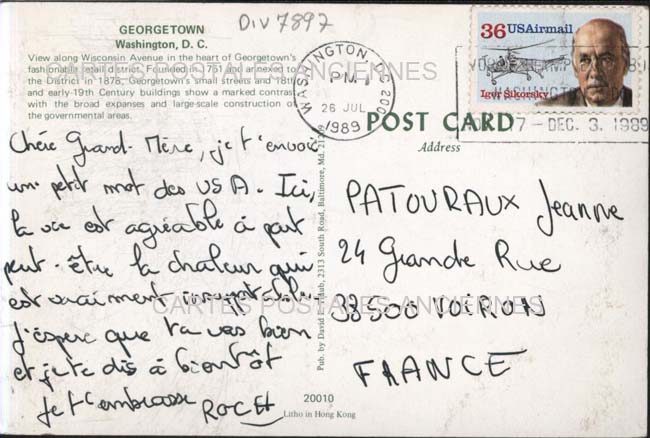 GEORGETOWN
Washington, D. C.
View along Wisconsin Avenue in the heart of Georgetown's
fashionable retail district. Founded in 1751 and annexed to
the District in 1878, Georgetown's small streets and 18th
and early-19th Century buildings show a marked contrast
with the broad expanses and large-scale construction of
the governmental areas.
Div 7897
WASHINGTON, DC 200
PM
26 JUL
1989
36 USAirmail
Igor Sikorsky
WASHINGTON
NOV. 17 - DEC. 3, 1989
POST CARD
Address
CARTES POSTALES ANCIENNES
Chère Grand-Mère, je t'envoie
un petit mot des USA. Ici,
la vie est agréable à part
peut-être la chaleur qui
est vraiment
J'espère que tu vas bien
et je te dis à bientôt
Je t'embrasse ROCH
Pub. by David E. Traub, 2313 South Road, Baltimore, Md. 21209
PATOURAUX Jeanne
24 Grande Rue
38500 VOIRON
FRANCE
CARTES POSTALES ANCIENNES
20010
Litho in Hong Kong